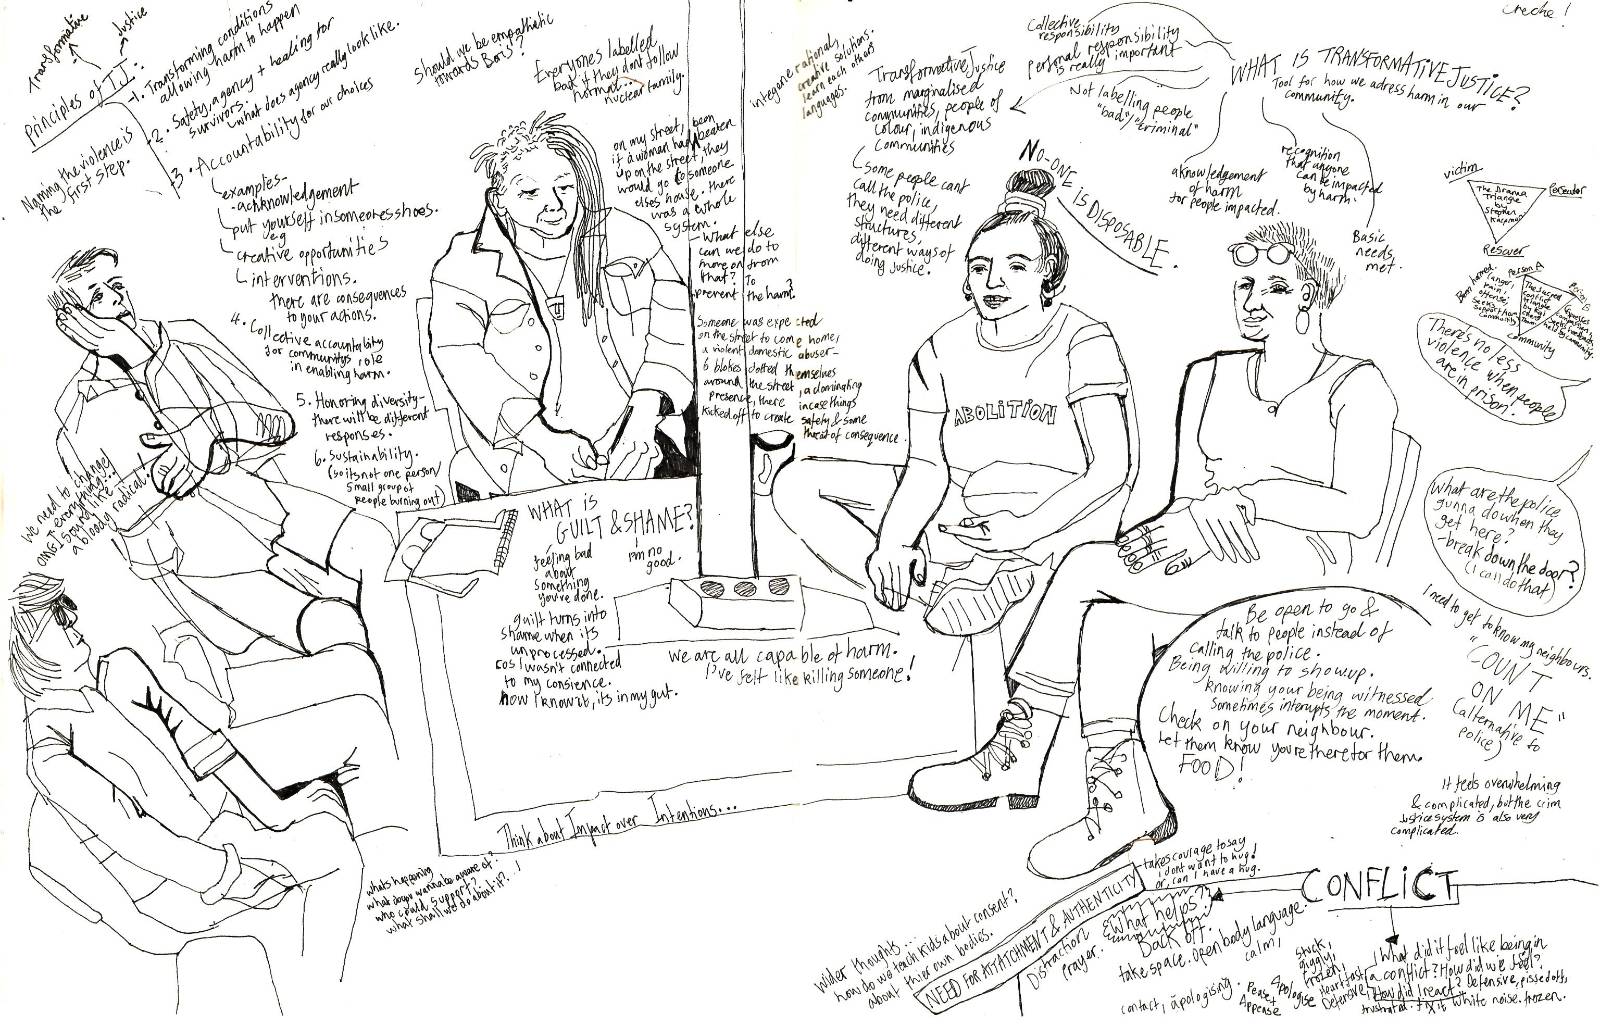 Transformative
Justice
Principles of T.J.
Naming the violence is
the first step.
1. Transforming conditions
allowing harm to happen
2. Safety, agency & healing for
survivors.
what does agency really look like.
3. Accountability for our choices
examples-
-acknowledgement
put yourself in someones shoes.
eg
creative opportunities
interventions.
there are consequences
to your actions.
4. Collective accountability
for communitys role
in enabling harm.
5. Honoring diversity-
there will be different
responses.
6. Sustainability.
(so its not one person/
small group of
people burning out)
we need to change
everything!..
OMG I sound like
a bloody radical!
should we be empathetic
towards Boris?
Everyones labelled
bad if they dont follow
normal...
nuclear family.
on my street,
if a woman had been beaten
up on the street, they
would go to someone
elses house. there
was a whole
system.
- What else
can we do to
move on from
that? To
prevent the harm?
Someone was expected
on the street to come home,
a violent domestic abuser-
6 blokes dotted themselves
around the street, a dominating
presence, there incase things
kicked off to create safety & some
threat of consequence.
WHAT IS
GUILT & SHAME?
feeling bad
about
something
you've done.
I'm no
good.
guilt turns into
shame when its
unprocessed.
cos I wasn't connected
to my consience.
now I know it, its in my gut.
we are all capable of harm.
I've felt like killing someone!
Think about Impact over Intentions...
whats happening
what do you wanna be aware of?
who could support?
what shall we do about it?..!
intergenerational,
creative solutions.
learn each others
languages.
Transformative Justice
from marginalised
communities, people of
colour, indigenous
communities
some people cant
call the police,
they need different
structures,
different ways of
doing justice.
Collective
responsibility
personal responsibility
is really important
Not labelling people
"bad"/"criminal"
NO-ONE IS DISPOSABLE.
ABOLITION
creche!
WHAT IS TRANSFORMATIVE JUSTICE?
Tool for how we adress harm in our
community.
aknowledgement
of harm
for people impacted.
recognition
that anyone
can be impacted
by harm.
Basic
needs
met.
victim
The Drama
Triangle
by
Stephen
Karpman
Rescuer
Person A
Community
There's no less
violence when people
are in prison.
What are the police
gunna do when they
get here?
-break down the door?
(I can do that)
I need to get to know my neighbours.
"COUNT
ON
ME"
(alternative to
police)
Be open to go &
talk to people instead of
calling the police.
Being willing to show up.
knowing your being witnessed
sometimes interupts the moment.
Check on your neighbour.
Let them know you're there for them.
FOOD!
It feels overwhelming
& complicated, but the crim
Justice system is also very
complicated..
takes courage to say
I dont want to hug!
or, can I have a hug.
CONFLICT
NEED FOR ATTATCHMENT & AUTHENTICITY
wider thoughts...
how do we teach kids about consent?
about thier own bodies.
What helps?
Distraction
prayer.
Back off.
take space. Open body language.
calm,
contact, apologising.
Please &
Appease
Apologise
stuck,
giggly,
frozen,
Heart fast
Defensive
What did it feel like being in
a conflict? How did we feel?
How did I react? Defensive, pissed off,
frustrated. fix it white noise. frozen.